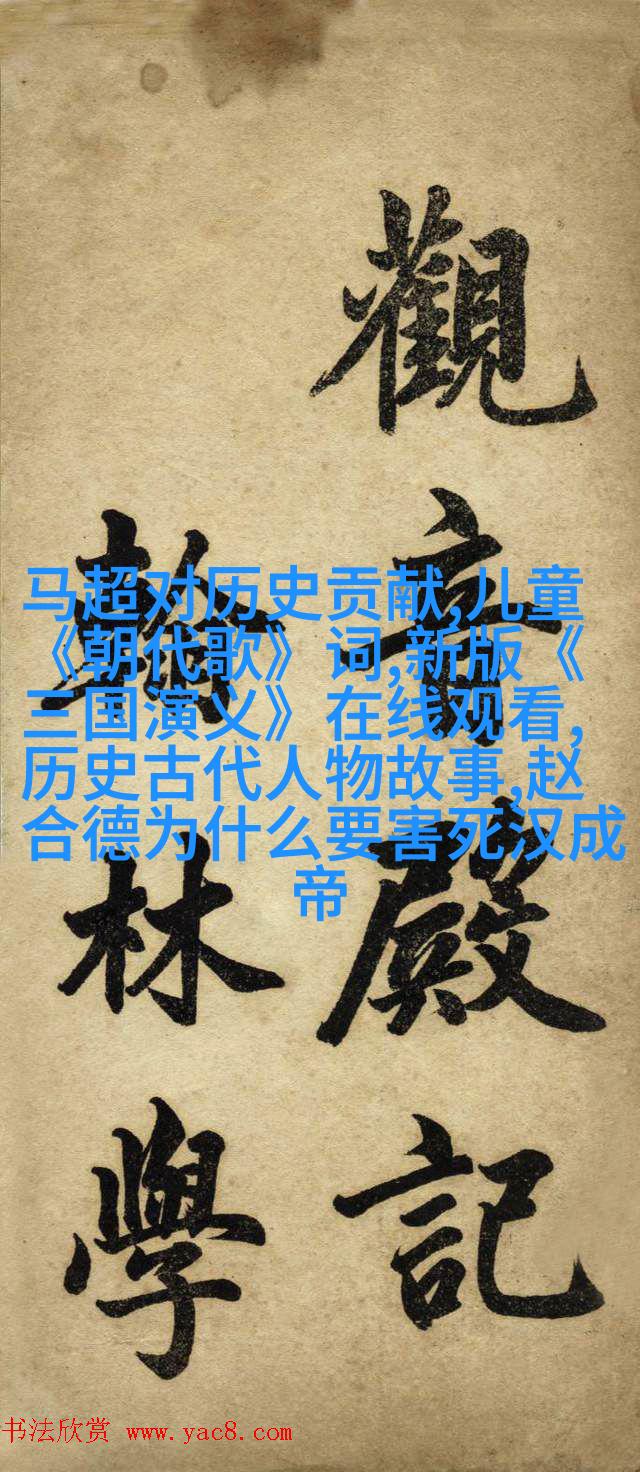 觀音殿記
翰林學
马超对历史贡献,儿童
《朝代歌》词,新版《
三国演义》在线观看,
历史古代人物故事,赵
合德为什么要害死汉成
帝
书法欣赏 www.yac8.com